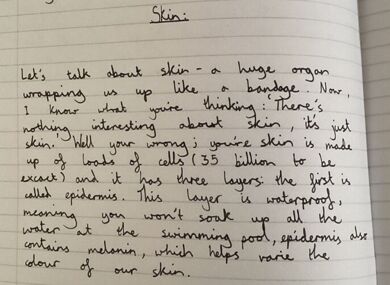 Skin:
Let's talk about skin - a huge organ
wrapping us up like a bandage. Now,
I know what you're thinking: 'There's
nothing interesting about skin, it's just
skin.' Well your wrong; you're skin is made
up of loads of cells (35 billion to be
excact) and it has three layers: the first is
called epidermis. This layer is waterproof,
meaning you won't soak up all the
water at the swimming pool, epidermis also
contains melanin, which helps varie the
colour of our skin.